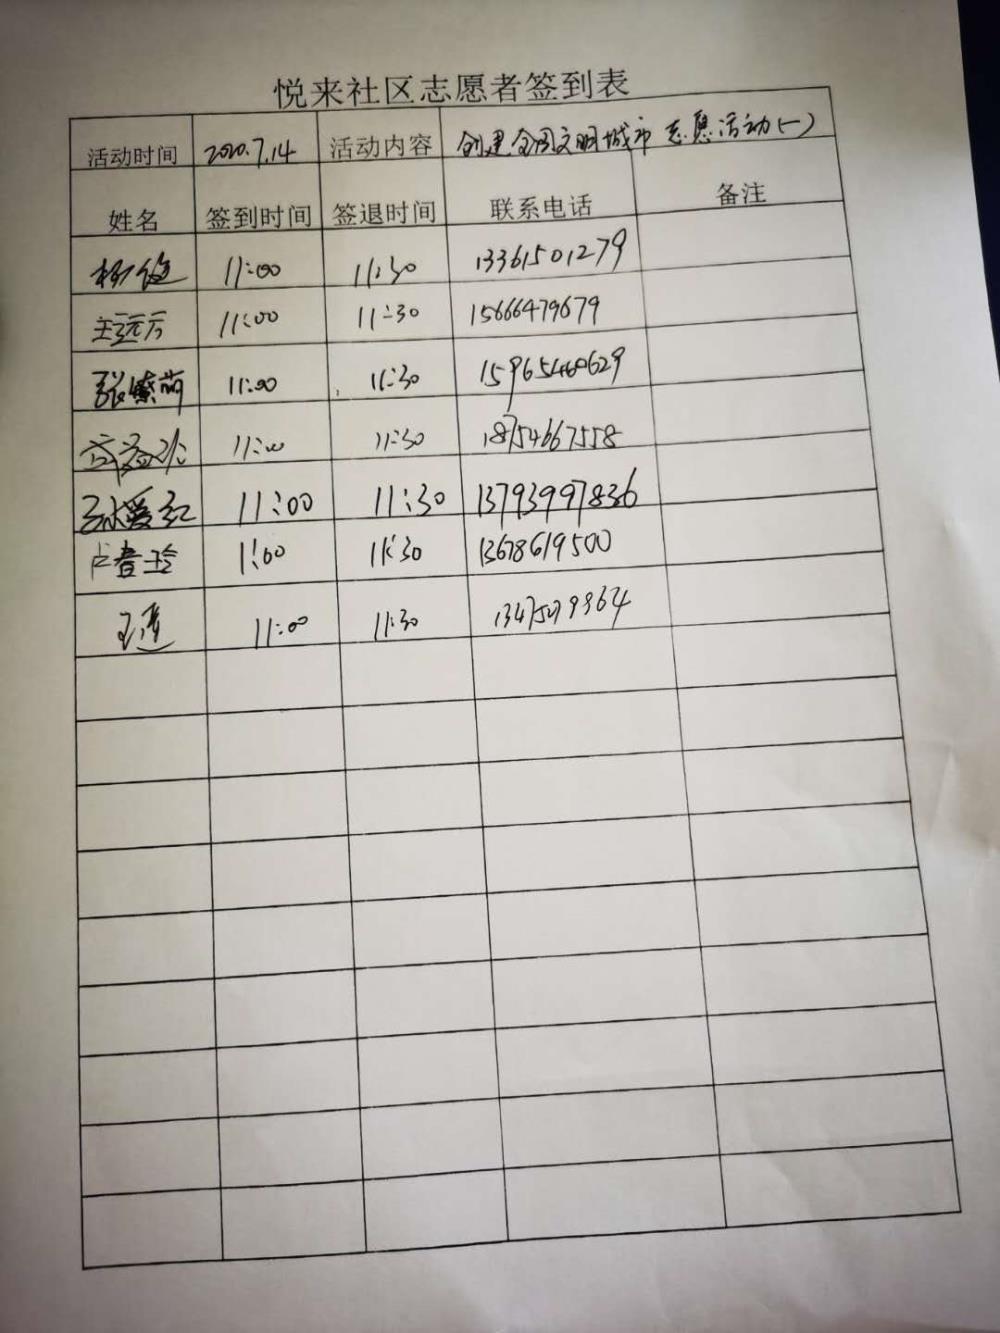 悦来社区志愿者签到表
活动时间 2020.7.14 活动内容 创建全国文明城市志愿活动(一)
姓名 签到时间 签退时间 联系电话 备注
11:00 11:30 13361501279
11:00 11:30 15666479679
张繁荫 11:00 11:30 15965460629
11:00 11:30 18754667558
孙爱红 11:00 11:30 13793997836
卢春玲 11:00 11:30 13678619500
11:00 11:30